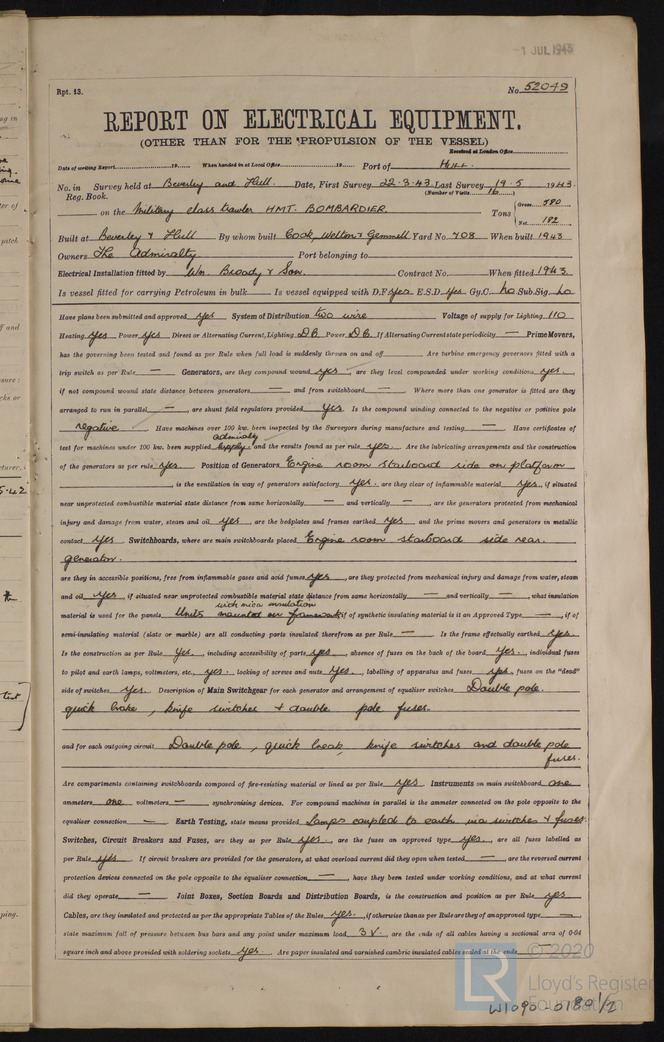 -1 JUL 1943
Rpt. 13.
No. 52049
REPORT ON ELECTRICAL EQUIPMENT.
(OTHER THAN FOR THE PROPULSION OF THE VESSEL)
Received at London Office
Date of writing Report 19 When handed in at Local Office 19 Port of HULL.
No. in Survey held at Beverley and Hull. Date, First Survey 22-3-43 Last Survey 19.5 1943
Reg. Book. (Number of Visits 16)
on the Military class trawler HMT. BOMBARDIER. Tons Gross 580 Net 182
Built at Beverley & Hull By whom built Cook, Welton & Gemmell Yard No. 708 When built 1943
Owners The Admiralty Port belonging to
Electrical Installation fitted by Wm. Broady & Son. Contract No. When fitted 1943
Is vessel fitted for carrying Petroleum in bulk Is vessel equipped with D.F. Yes E.S.D. Yes Gy.C. No Sub.Sig. No
Have plans been submitted and approved yes System of Distribution two wire Voltage of supply for Lighting 110
Heating Yes Power Yes Direct or Alternating Current, Lighting D.C. Power D.C. If Alternating Current state periodicity — Prime Movers,
has the governing been tested and found as per Rule when full load is suddenly thrown on and off Are turbine emergency governors fitted with a
trip switch as per Rule — Generators, are they compound wound yes are they level compounded under working conditions yes.
if not compound wound state distance between generators — and from switchboard — Where more than one generator is fitted are they
arranged to run in parallel — , are shunt field regulators provided Yes Is the compound winding connected to the negative or positive pole
negative Have machines over 100 kw. been inspected by the Surveyors during manufacture and testing — Have certificates of
test for machines under 100 kw. been supplied admiralty supply and the results found as per rule yes. Are the lubricating arrangements and the construction
of the generators as per rule yes. Position of Generators Engine room starboard side on platform
, is the ventilation in way of generators satisfactory yes. are they clear of inflammable material yes, if situated
near unprotected combustible material state distance from same horizontally — and vertically — , are the generators protected from mechanical
injury and damage from water, steam and oil yes , are the bedplates and frames earthed yes and the prime movers and generators in metallic
contact yes Switchboards, where are main switchboards placed Engine room starboard side near.
generator.
are they in accessible positions, free from inflammable gases and acid fumes yes , are they protected from mechanical injury and damage from water, steam
and oil yes , if situated near unprotected combustible material state distance from same horizontally — and vertically — , what insulation
material is used for the panels Units mounted on framework with mica insulation if of synthetic insulating material is it an Approved Type — , if of
semi-insulating material (slate or marble) are all conducting parts insulated therefrom as per Rule — Is the frame effectually earthed yes.
Is the construction as per Rule Yes. , including accessibility of parts yes , absence of fuses on the back of the board yes. , individual fuses
to pilot and earth lamps, voltmeters, etc. yes. locking of screws and nuts yes. , labelling of apparatus and fuses yes. , fuses on the "dead"
side of switches yes. Description of Main Switchgear for each generator and arrangement of equaliser switches Double pole.
quick brake, knife switches + double pole fuses.
and for each outgoing circuit Double pole, quick break, knife switches and double pole
fuses.
Are compartments containing switchboards composed of fire-resisting material or lined as per Rule yes Instruments on main switchboard one
ammeters one voltmeters — synchronising devices. For compound machines in parallel is the ammeter connected on the pole opposite to the
equaliser connection — Earth Testing, state means provided Lamps coupled to earth via switches & fuses.
Switches, Circuit Breakers and Fuses, are they as per Rule yes. , are the fuses an approved type yes. , are all fuses labelled as
per Rule yes. If circuit breakers are provided for the generators, at what overload current did they open when tested — , are the reversed current
protection devices connected on the pole opposite to the equaliser connection — , have they been tested under working conditions, and at what current
did they operate — Joint Boxes, Section Boards and Distribution Boards, is the construction and position as per Rule yes
Cables, are they insulated and protected as per the appropriate Tables of the Rules yes. , if otherwise than as per Rule are they of an approved type — ,
state maximum fall of pressure between bus bars and any point under maximum load 3 V. , are the ends of all cables having a sectional area of 0·04
square inch and above provided with soldering sockets yes. Are paper insulated and varnished cambric insulated cables sealed at the ends —
© 2020
Lloyd's Register
Foundation
W1090-0180 1/2